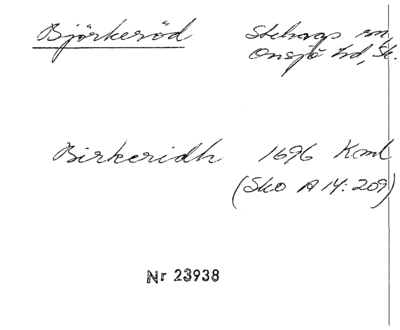 Björkeröd Stehags sn,
Onsjö hd, Sk.
Birkeridh 1696 Kml
(Sko A 14:209)
Nr 23938